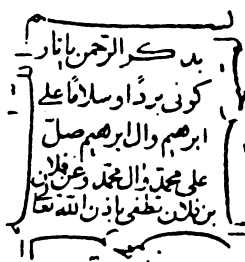 بذكر الرحمن يا نار
كونى بردًا وسلامًا على
ابرهيم وال ابرهيم صلّ
على محمّد وال محمّد وعن فلان
بن فلان تطفى باذن اللّٰه تعا